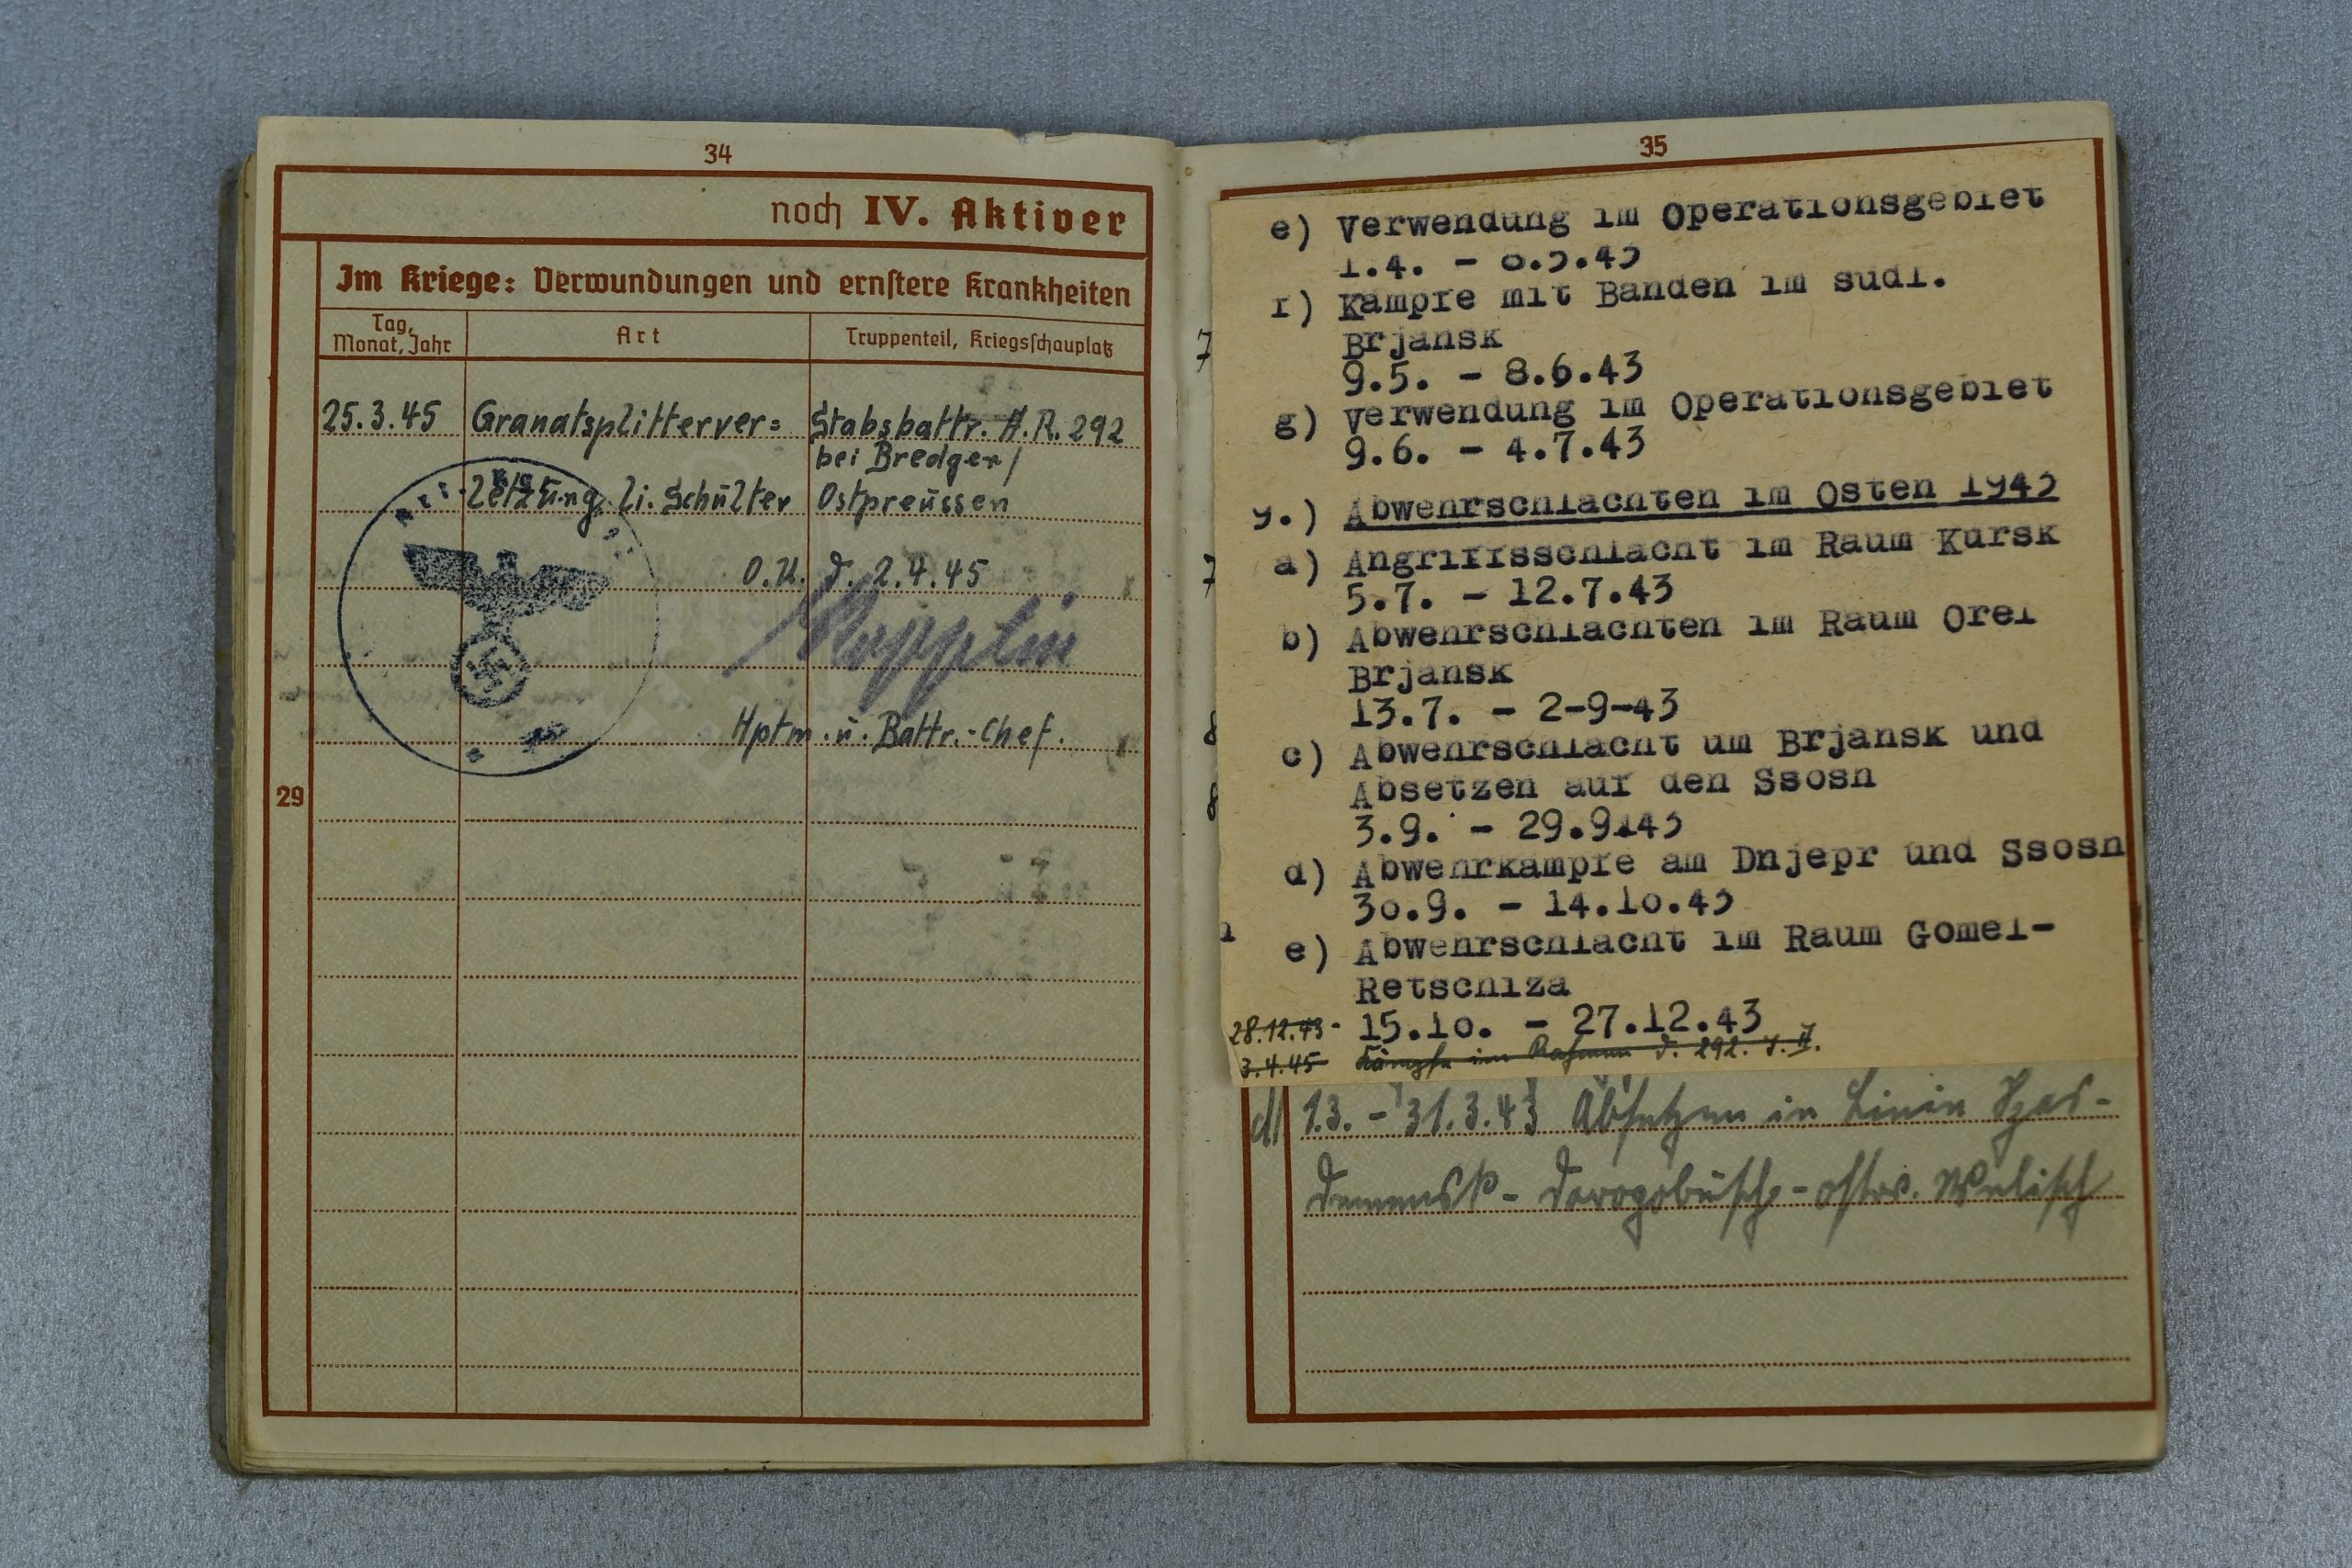 34
noch IV. Aktiver
Im Kriege: Verwundungen und ernstere Krankheiten
Tag, Monat, Jahr
Art
Truppenteil, Kriegsschauplatz
25.3.45 Granatsplitterver= Stabsbattr. A.R. 292
bei Bredger/
letzung li. Schulter Ostpreussen
O.U. d. 2.4.45
Hptm. u. Battr.-Chef.
29
35
7
7
8
8
e) Verwendung im Operationsgebiet
1.4. - 8.5.43
f) Kämpfe mit Banden im südl.
Brjansk
9.5. - 8.6.43
g) Verwendung im Operationsgebiet
9.6. - 4.7.43
9.) Abwehrschlachten im Osten 1943
a) Angriffsschlacht im Raum Kursk
5.7. - 12.7.43
b) Abwehrschlachten im Raum Orel
Brjansk
13.7. - 2-9-43
c) Abwehrschlacht um Brjansk und
Absetzen auf den Ssosh
3.9. - 29.9.43
d) Abwehrkämpfe am Dnjepr und Ssosh
30.9. - 14.10.43
e) Abwehrschlacht im Raum Gomel-
Retschiza
28.12.43- 15.10. - 27.12.43
3.4.45 Kämpfe im Rahmen d. 292. I.D.
d) 1.3. - 31.3.43 Absetzen in Linie Spas-
Demensk - Dorogobusch - ostw.